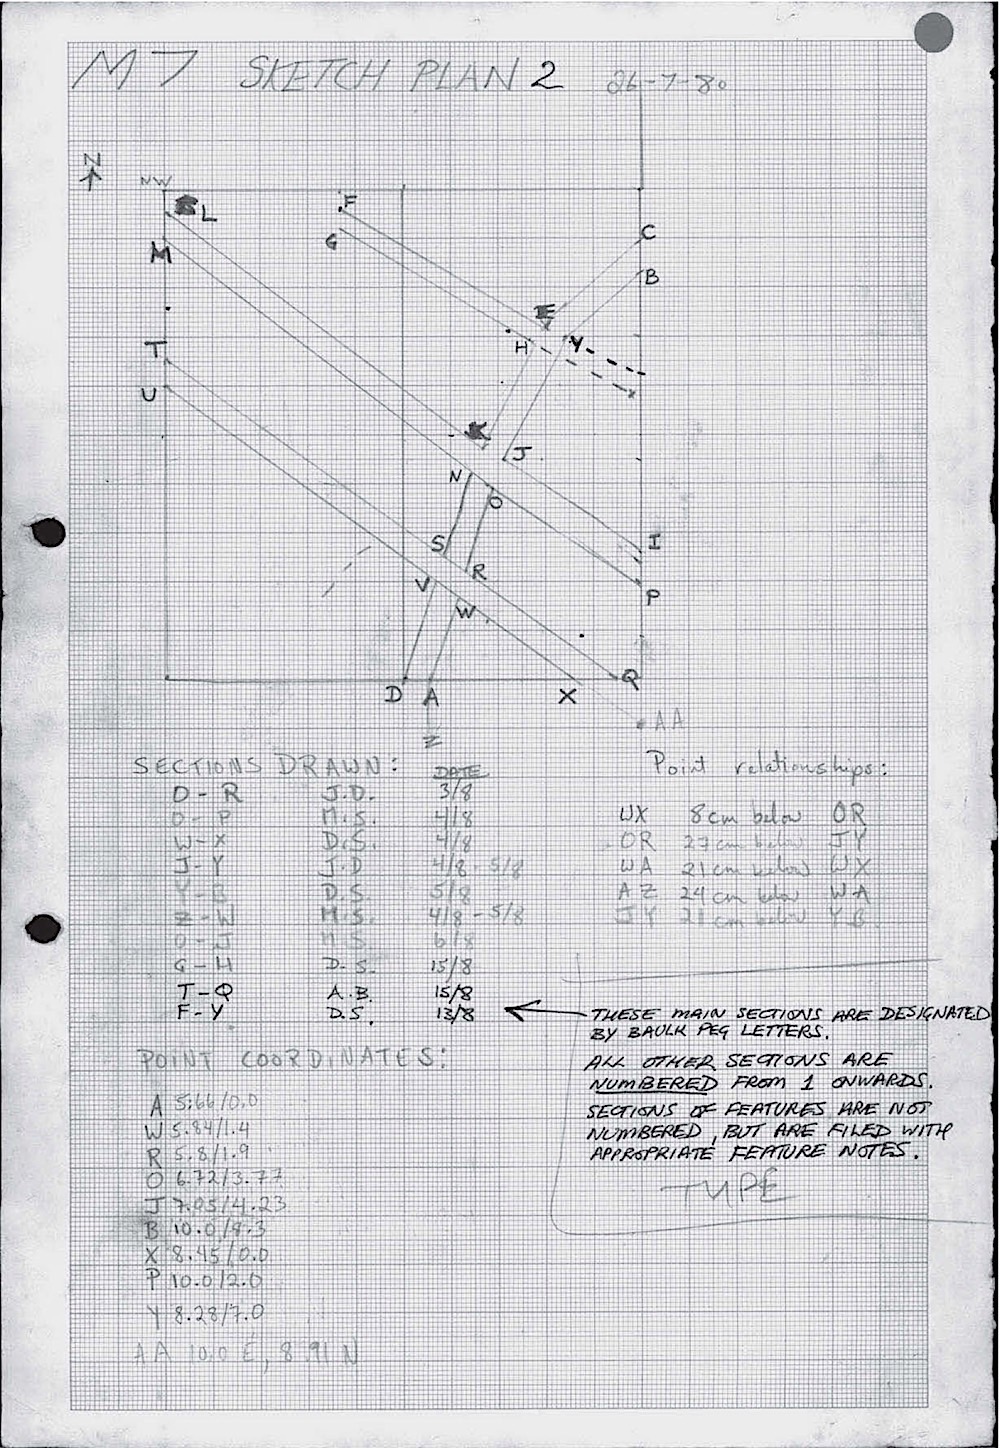 M7 SKETCH PLAN 2 26-7-80
N
NW
L
F
M
G
C
B
E
H
Y
T
U
K
J
N
O
S
R
I
V
W
P
D
A
X
Q
AA
Z
SECTIONS DRAWN: DATE
O - R J.D. 3/8
O - P M.S. 4/8
W - X D.S. 4/8
J - Y J.D 4/8 - 5/8
Y - B D.S. 5/8
Z - W M.S. 4/8 - 5/8
O - J M S. 6/8
G - H D.S. 15/8
T - Q A.B. 15/8
F - Y D.S. 13/8
Point relationships:
WX 8cm below OR
OR 27cm below JY
WA 21cm below WX
AZ 24cm below WA
JY 21cm below YB
THESE MAIN SECTIONS ARE DESIGNATED
BY BAULK PEG LETTERS.
ALL OTHER SECTIONS ARE
NUMBERED FROM 1 ONWARDS.
SECTIONS OF FEATURES ARE NOT
NUMBERED, BUT ARE FILED WITH
APPROPRIATE FEATURE NOTES.
TYPE
POINT COORDINATES:
A 5.66/0.0
W 5.84/1.4
R 5.8/1.9
O 6.72/3.77
J 7.05/4.23
B 10.0/8.3
X 8.45/0.0
P 10.0/2.0
Y 8.28/7.0
AA 10.0 E, 8.91 N